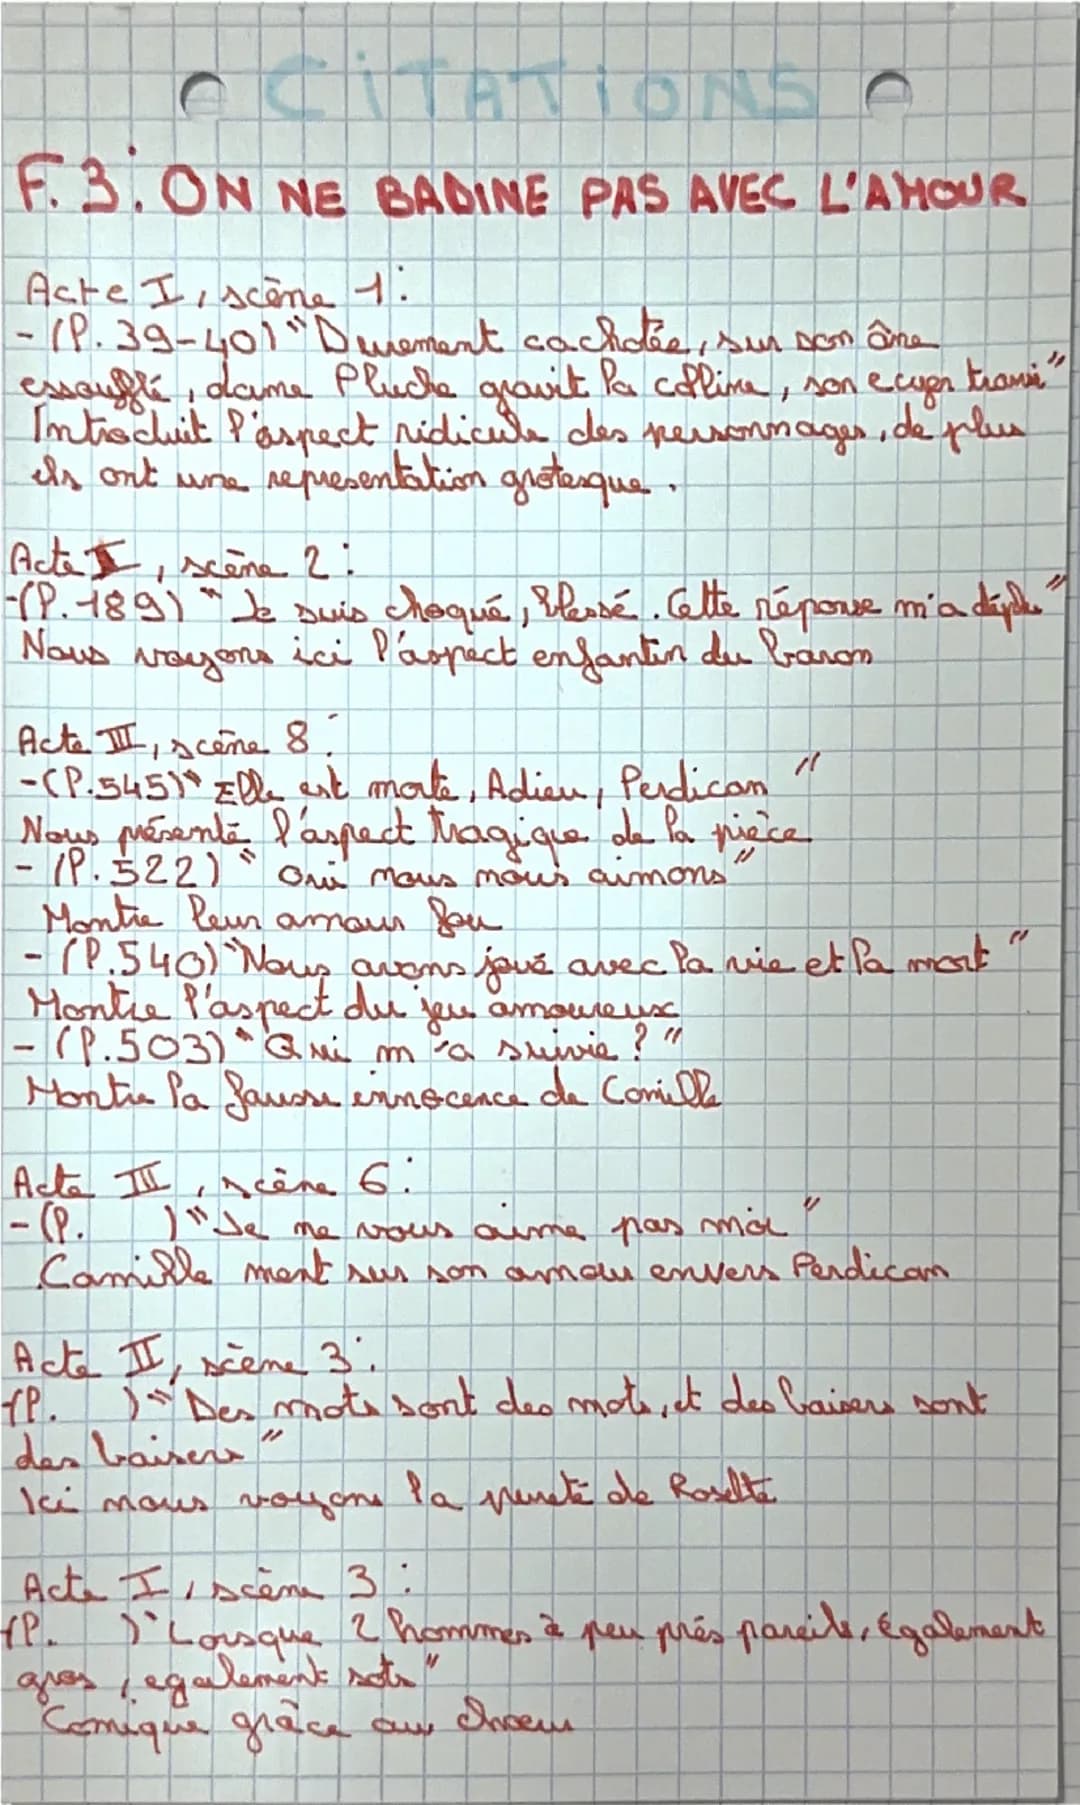 CiTATiONS
F.3: ON NE BADINE PAS AVEC L'AMOUR
Acte I, scène 1:
- (P.39-40) "Durement cachotée, sur son âne
essouflé, dame Pluche gravit la colline, son ecuyer transi"
Introduit l'aspect ridicule des personnages, de plus
ils ont une representation grotesque.
Acte I, scène 2:
-(P.189) "Je suis choqué, blessé. Cette réponse m'a déplu"
Nous voyons ici l'aspect enfantin du baron
Acte III, scène 8:
-(P.545) "Elle est morte, Adieu, Perdican"
Nous présente l'aspect tragique de la pièce
- (P.522) "Oui nous nous aimons"
Montre leur amour fou
- (P.540) "Nous avons joué avec la vie et la mort"
Montre l'aspect du jeu amoureux
- (P.503) "Qui m'a suivie ?"
Montre la fausse innocence de Camille
Acte III, scène 6:
- (P. ) "Je ne vous aime pas moi"
Camille ment sur son amou envers Perdican
Acte II, scène 3:
(P. ) "Des mots sont des mots, et des baisers sont
des baisers"
Ici nous voyons la pureté de Rosette
Acte I, scène 3:
(P. ) "Lorsque 2 hommes à peu près pareils, également
gros, egalement sots"
Comique grâce au choeur